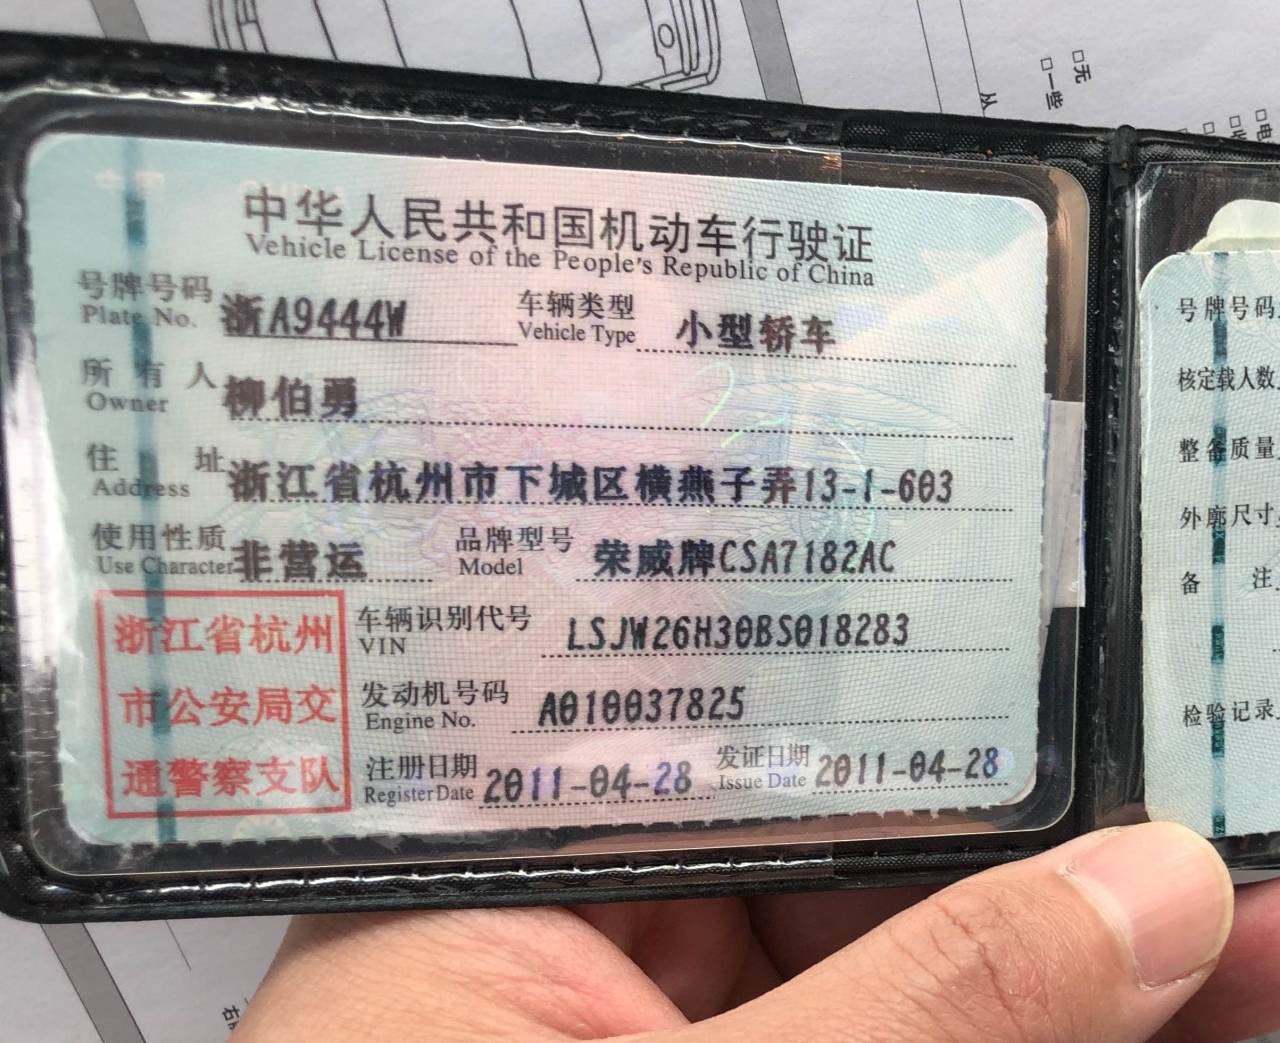 中华人民共和国机动车行驶证
Vehicle License of the People's Republic of China
号牌号码 浙A9444W 车辆类型 小型轿车
Plate No. Vehicle Type
所有人 柳伯勇
Owner
住址 浙江省杭州市下城区横燕子弄13-1-603
Address
使用性质 非营运 品牌型号 荣威牌CSA7182AC
Use Character Model
浙江省杭州
市公安局交
通警察支队
车辆识别代号 LSJW26H30BS018283
VIN
发动机号码 A010037825
Engine No.
注册日期 2011-04-28 发证日期 2011-04-28
Register Date Issue Date
号牌号码
核定载人数
整备质量
外廓尺寸
备注
检验记录
无
一些